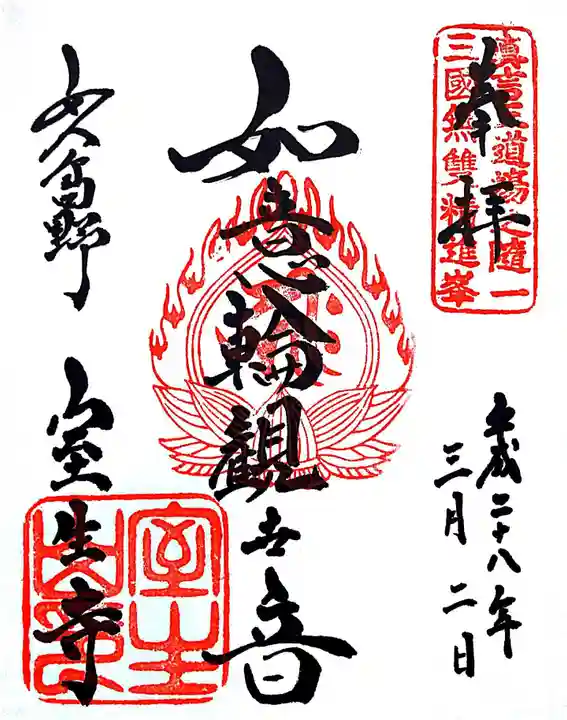 奉拝
真言三道場之随一
三國無雙精進峯
平成二十八年
三月二日
如意輪観世音
女人高野
室生寺